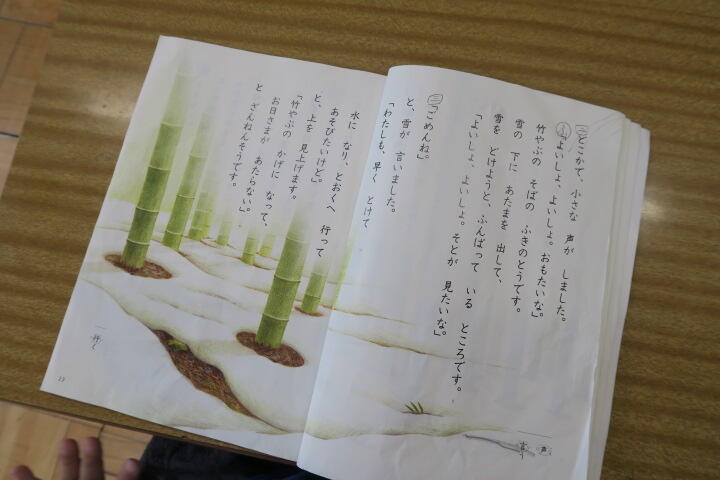 どこかで、小さな 声が しました。
「よいしょ、よいしょ。おもたいな。」
竹やぶの そばの ふきのとうです。
雪の 下に あたまを 出して、
雪を どけようと、ふんばって いる ところです。
「よいしょ、よいしょ。そとが 見たいな。」
「ごめんね。」
と、雪が 言いました。
「わたしも、早く とけて
水に なり、とおくへ 行って
あそびたいけど。」
と、上を 見上げます。
「竹やぶの かげに なって、
お日さまが あたらない。」
と ざんねんそうです。
声
言う
行く